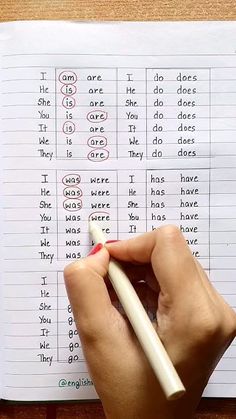 I am are I do does
He is are He do does
She is are She do does
You is are You do does
It is are It do does
We is are We do does
They is are They do does
I was were I has have
He was were He has have
She was were She has have
You was were You has have
It was have
We was have
They was have
I
He
She
You
It
We
They